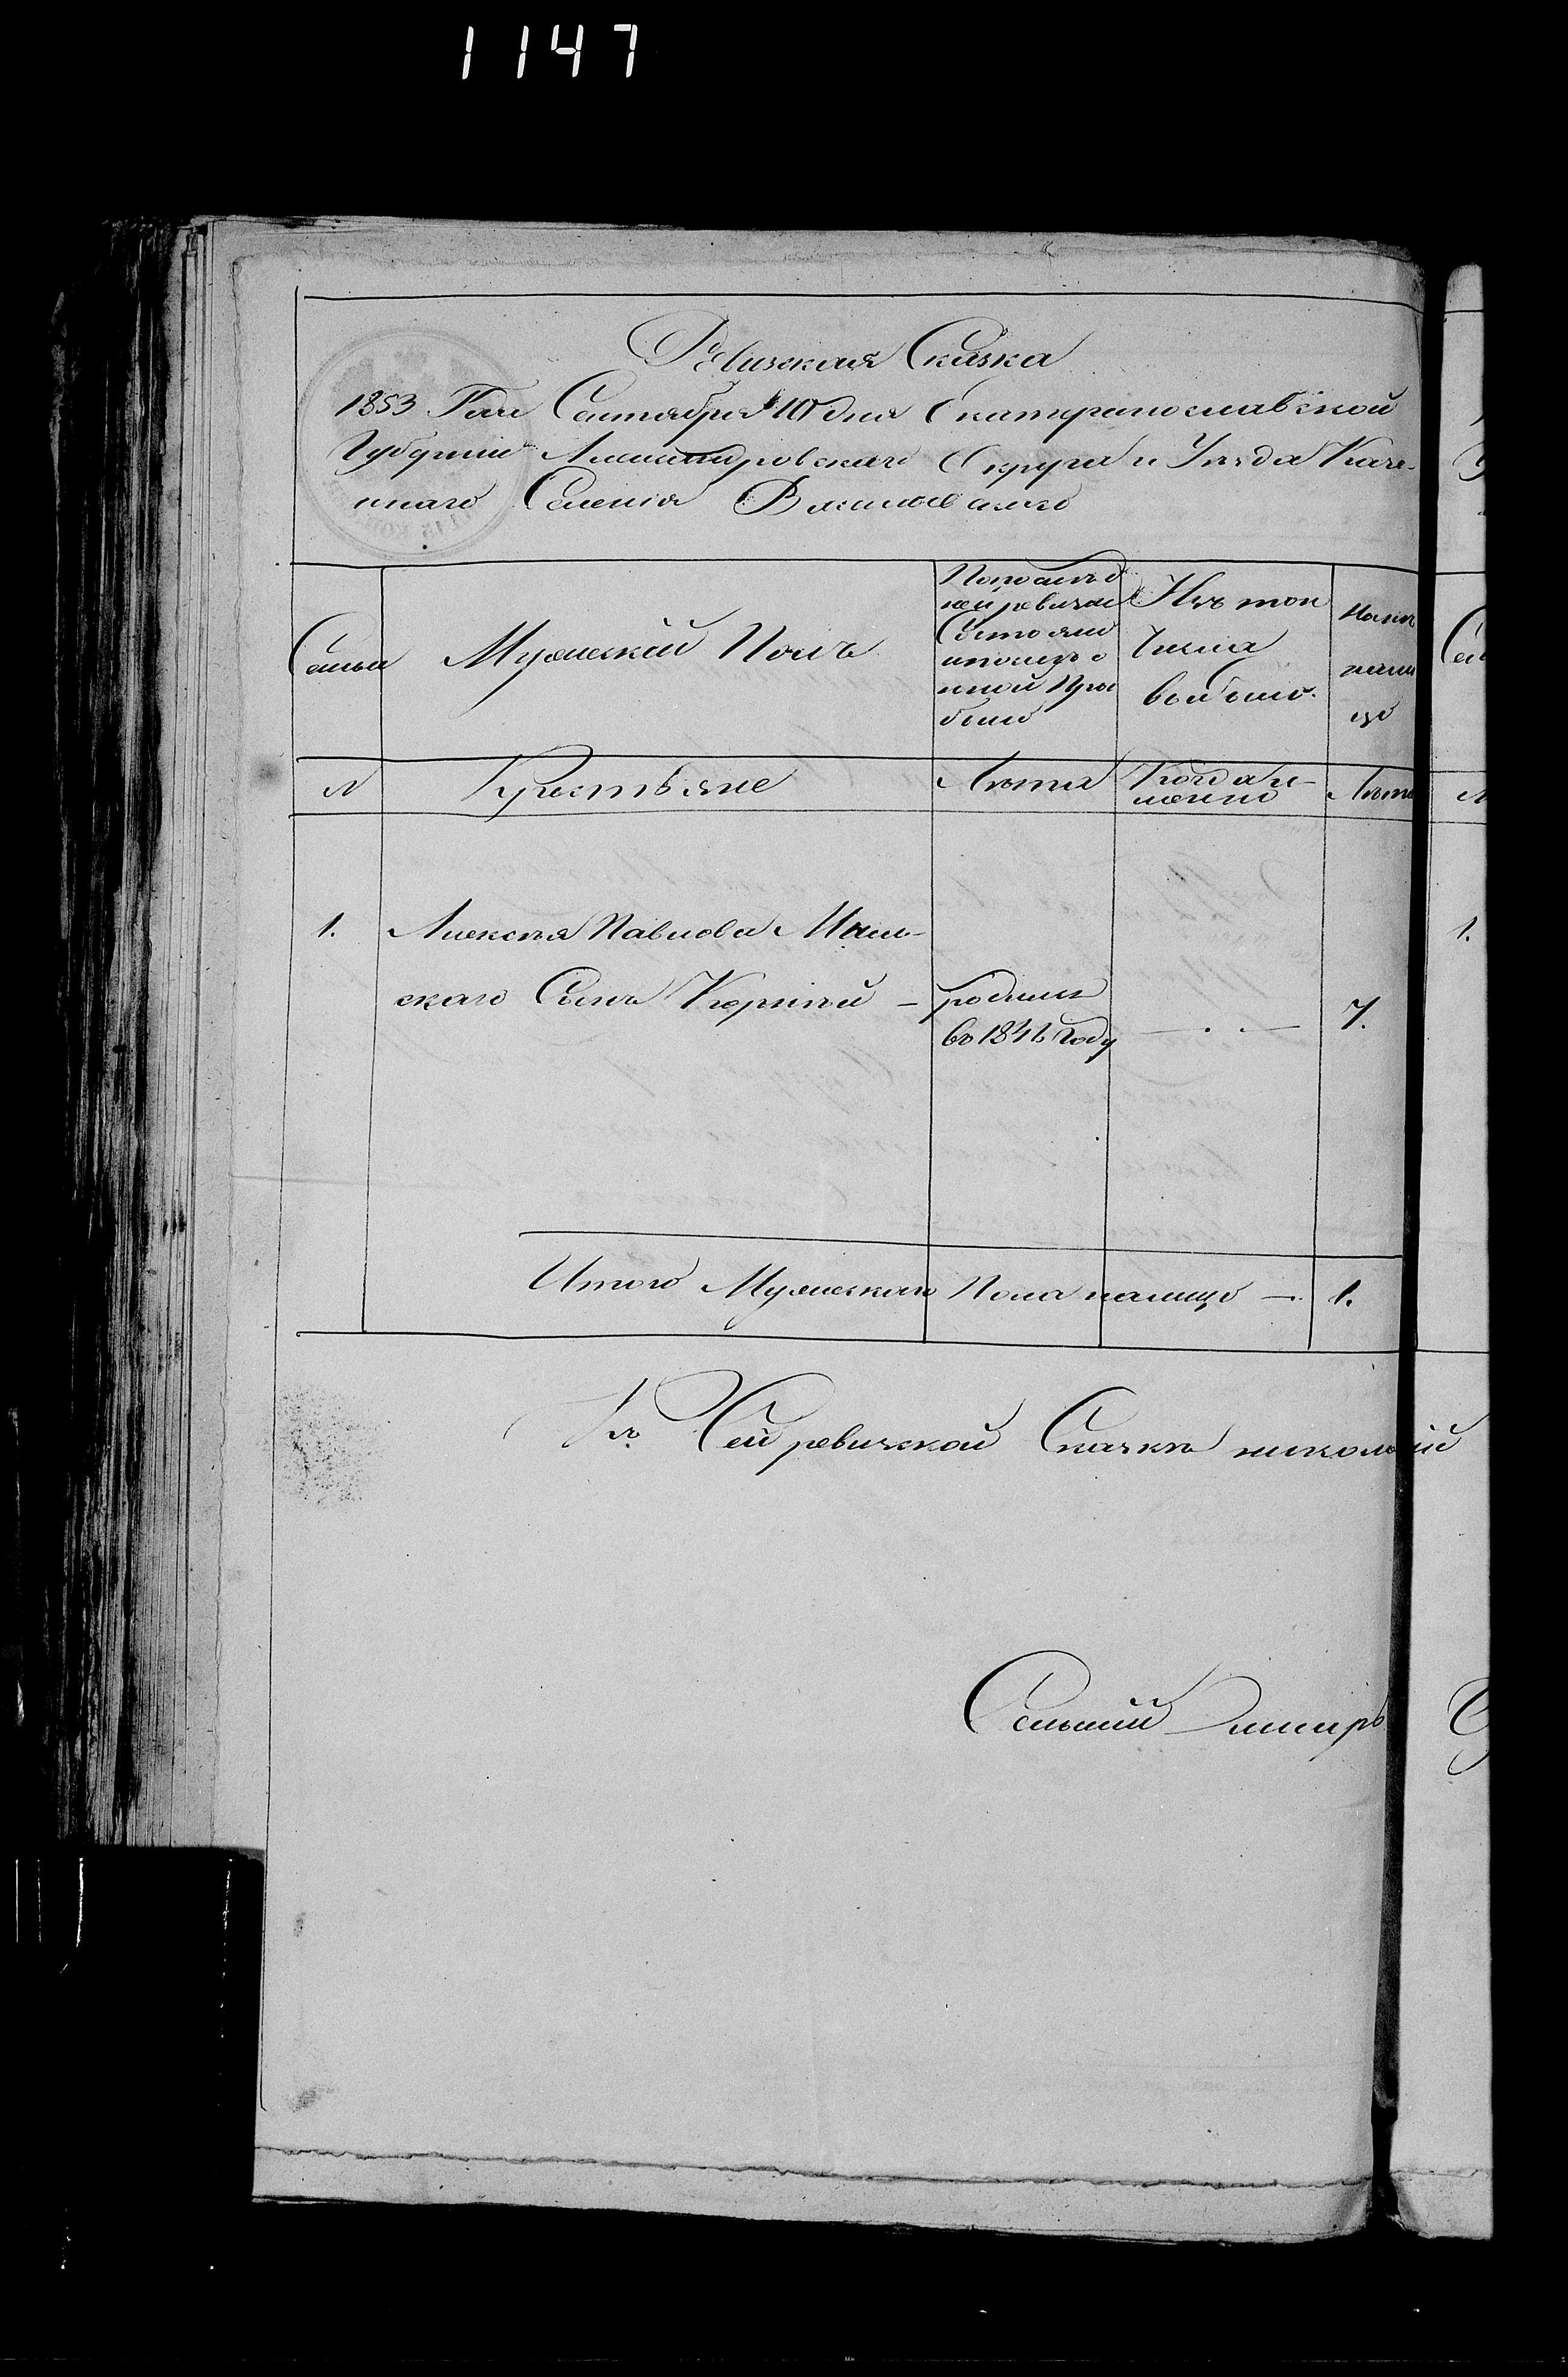 1147
Ревизская Сказка
1853 Года Сентября 10 дня Екатеринославской
Губернии Александровского Округа и Уезда Казе-
ннаго Селения
Семьи
Мужеский Полъ
По послѣд
ней ревизіи
Состояло
и после о
нной При
было
Изъ того
Числа
выбыло.
Нынѣ
нали
цо
№
Крестьяне
Лѣта
Когда и-
менно
Лѣта
1.
Алексѣя Павлова
скаго Сынъ Корнѣй –
родился
въ 1846 Году
— . —
7.
1.
Итого Мужескаго Пола налицо —
1.
Къ Сей ревизской Сказкѣ
Сельский